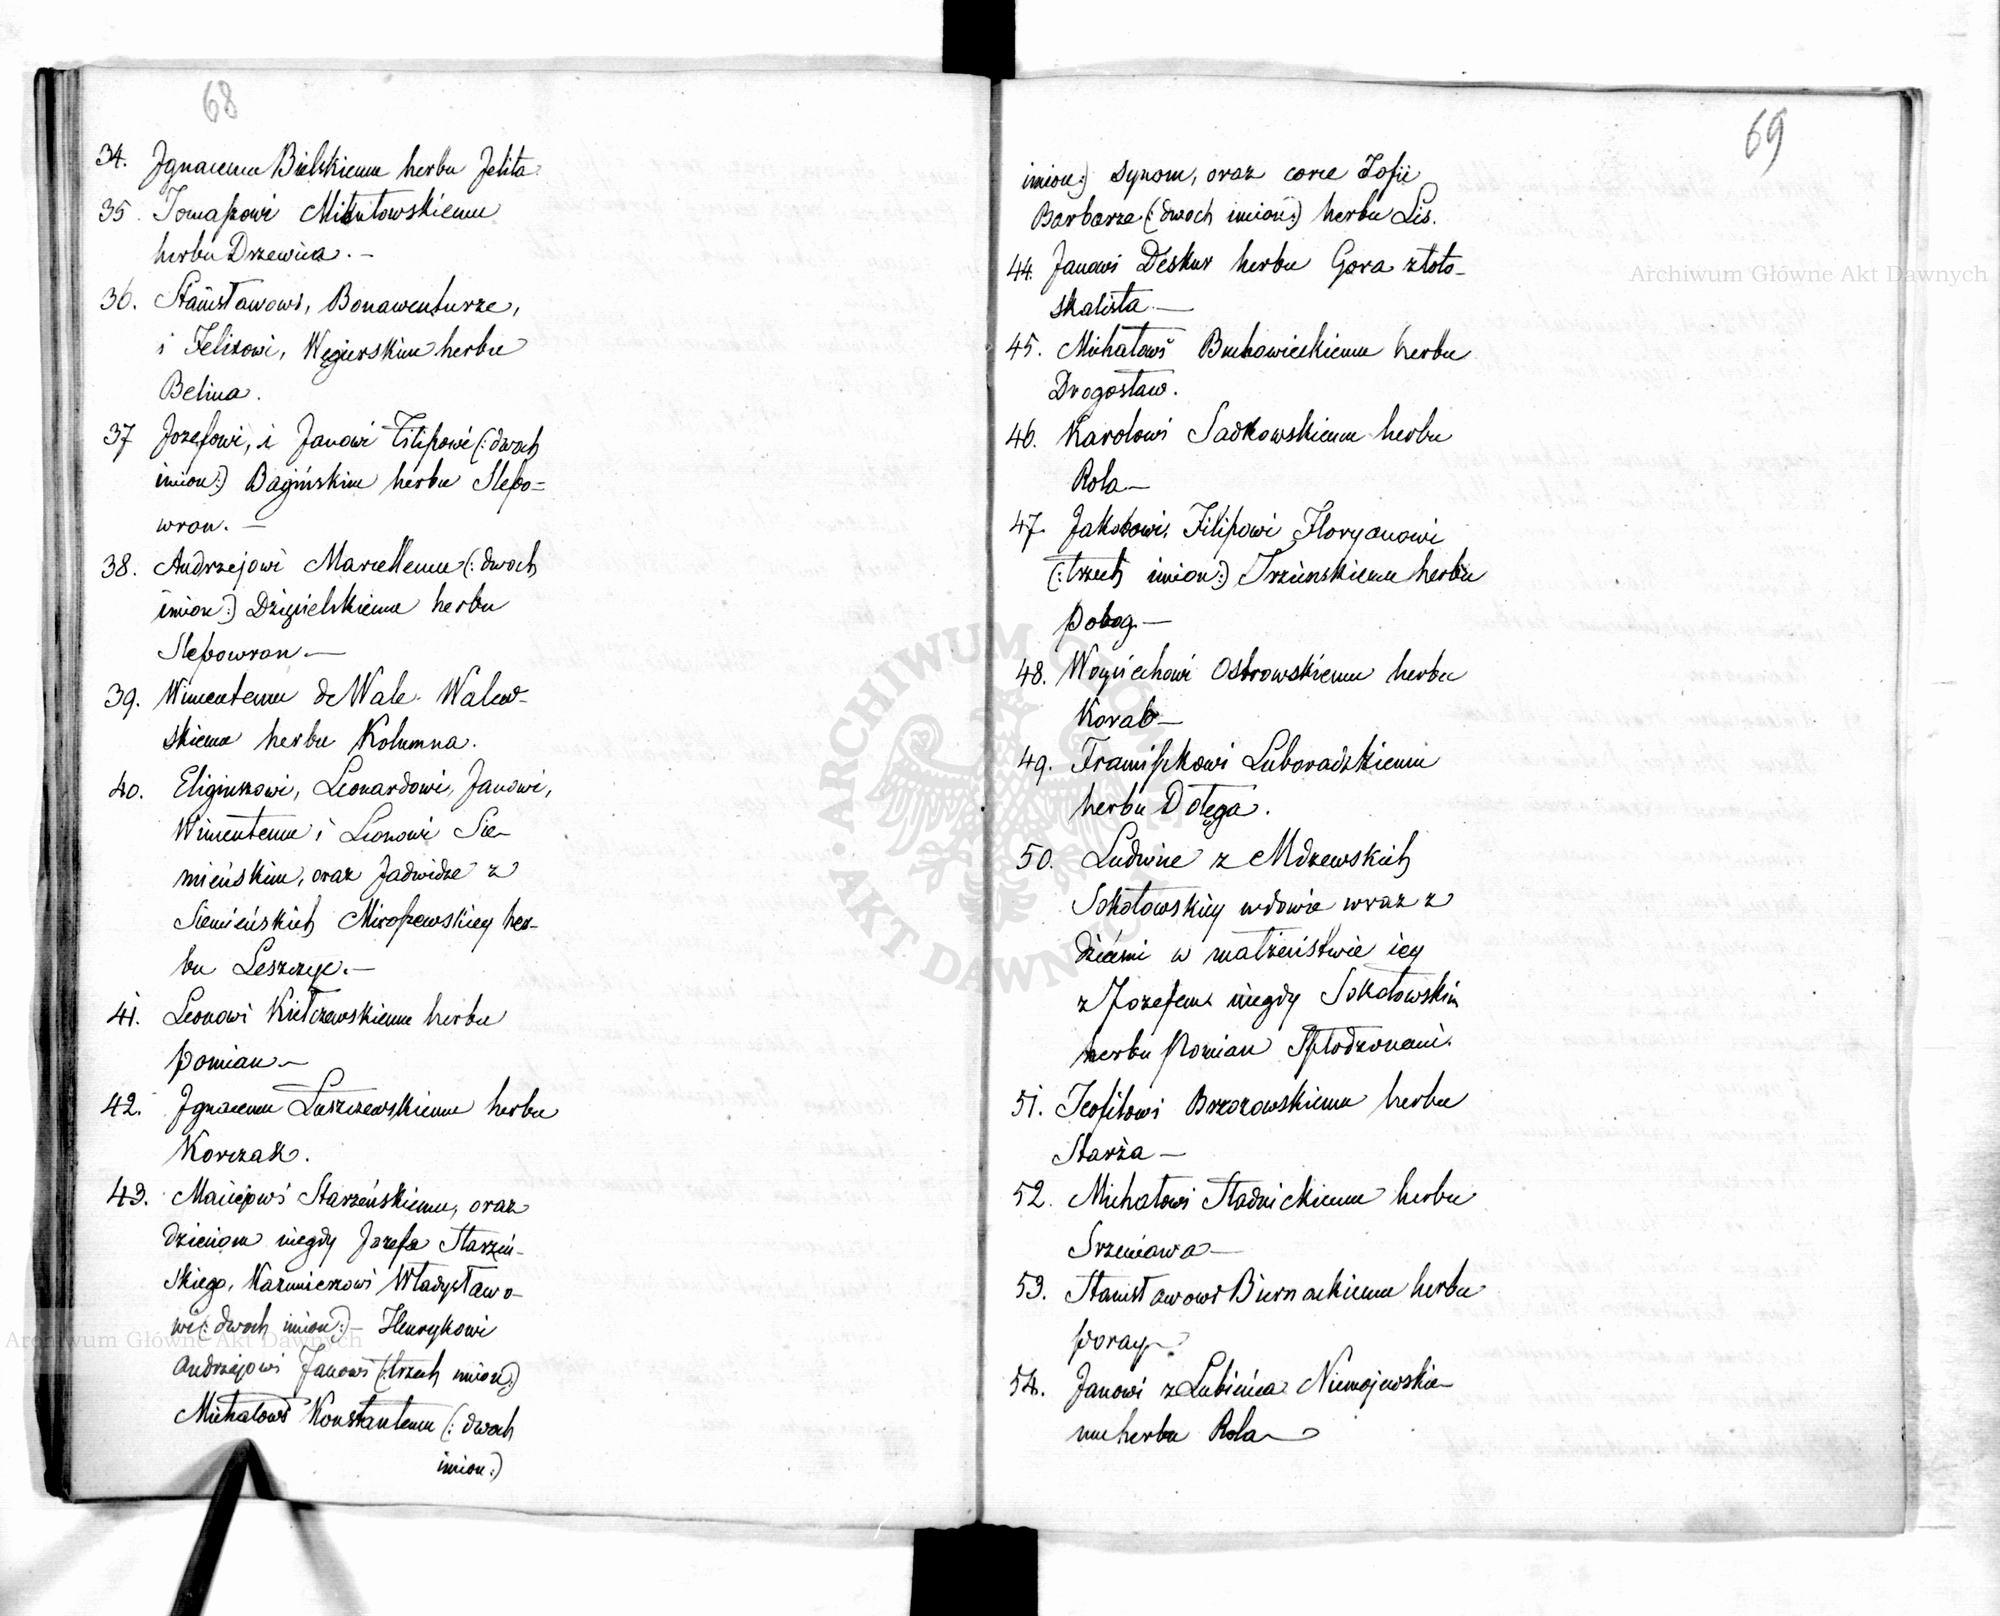 68
34. Jgnacemu Bielskiemu herbu Jelita
35. Tomaszowi Mikułowskiemu
herbu Drzewica. —
36. Stanisławowi, Bonawenturze,
i Felixowi, Węgierskim herbu
Belina.
37 Jozefowi, i Janowi Filipowi (: dwoch
imion:) Bagińskim herbu Slepo=
wron. —
38. Andrzejowi Marcellemu (: dwoch
imion:) Dzięgielskiemu herbu
Slepowron —
39. Wincentemu de Wale Walew-
skiemu herbu Kolumna.
40. Eligiuszowi, Leonardowi, Janowi,
Wincentemu i Leonowi Sie-
mieńskim, oraz Jadwidze z
Siemieńskich Miroszewskiey her-
bu Leszczyc. —
41. Leonowi Kiełczewskiemu herbu
Pomian —
42. Jgnacemu Łuszczewskiemu herbu
Korczak.
43. Maciejowi Starzeńskiemu, oraz
dzieciom niegdy Jozefa Starzeń-
skiego, Kazimierzowi Władysławo-
wi (: dwoch imion:) — Henrykowi
Andrzejowi Janowi (: trzech imion:)
Michałowi Konstantemu (: dwoch
imion:)
69
imion:) synom, oraz corce Zofii
Barbarze (: dwoch imion:) herbu Lis.
44. Janowi Deskur herbu Gora złoto-
skalista —
45. Michałowi Buchowieckiemu herbu
Drogosław.
46. Karolowi Sadkowskiemu herbu
Rola —
47. Jakobowi, Filipowi Floryanowi
(: trzech imion:) Trzcinskiemu herbu
Pobog —
48. Woyciechowi Ostrowskiemu herbu
Korab —
49. Franciszkowi Luboradzkiemu
herbu Dołęga.
50. Ludwice z Mdzewskich
Sokołowskiey wdowie wraz z
dziećmi w małżeństwie iey
z Jozefem niegdy Sokołowskim
herbu Pomian Spłodzonemi.
51. Teofilowi Brzozowskiemu herbu
Starża —
52. Michałowi Stadnickiemu herbu
Srzeniawa —
53. Stanisławowi Biernackiemu herbu
Poray
54. Janowi z Lubieńca Niemojewskie-
mu herbu Rola —
Archiwum Główne Akt Dawnych
Archiwum Główne Akt Dawnych